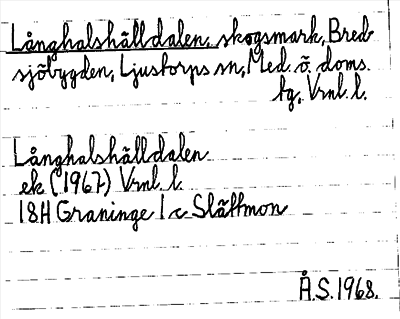 Långhalshälldalen, skogsmark, Bred-
sjöbygden, Ljustorps sn, Med. ö. doms.
tg, Vrnl. l.
Långhalshälldalen
ek (1967) Vrnl. l.
18H Graninge 1 c Slättmon
Å.S. 1968.